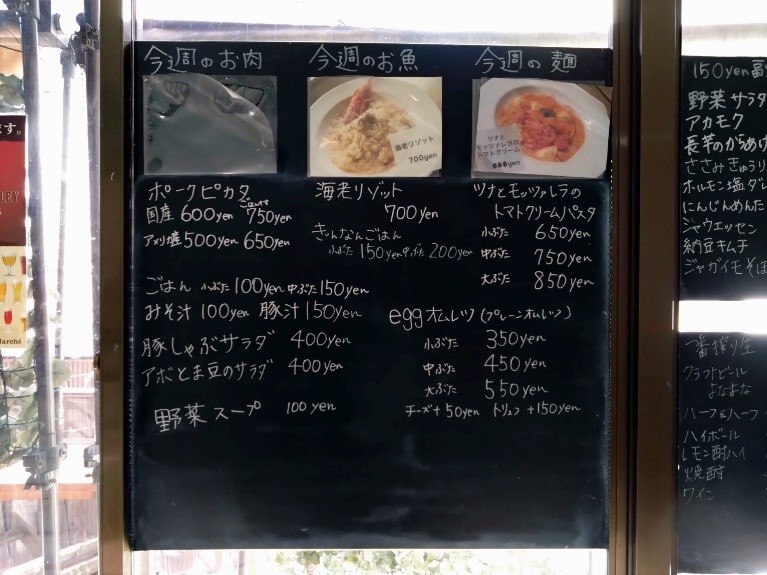 今週のお肉
今週のお魚
今週の麺
海老リゾット
700yen
ツナと
モッツァレラの
トマトクリーム
ポークピカタ
ごはん付
国産 600yen 750yen
アメリカ産 500yen 650yen
海老リゾット
700yen
ぎんなんごはん
小ぶた 150yen 中ぶた 200yen
ツナとモッツァレラの
トマトクリームパスタ
小ぶた 650yen
中ぶた 750yen
大ぶた 850yen
ごはん 小ぶた 100yen 中ぶた 150yen
みそ汁 100yen 豚汁 150yen
豚しゃぶサラダ 400yen
アボとま豆のサラダ 400yen
野菜スープ 100yen
egg オムレツ (プレーンオムレツ)
小ぶた 350yen
中ぶた 450yen
大ぶた 550yen
チーズ+50yen トリュフ +150yen
150yen
野菜サラダ
アカモク
長芋のからあげ
ささみきゅうり
ホルモン塩ダレ
にんじんめんた
ジャウエッセン
納豆キムチ
ジャガイモそぼ
一番搾り生
クラフトビール
よなよな
ハーフ&ハーフ
ハイボール
レモン酎ハイ
焼酎
ワイン
ます。
LEY
Marché